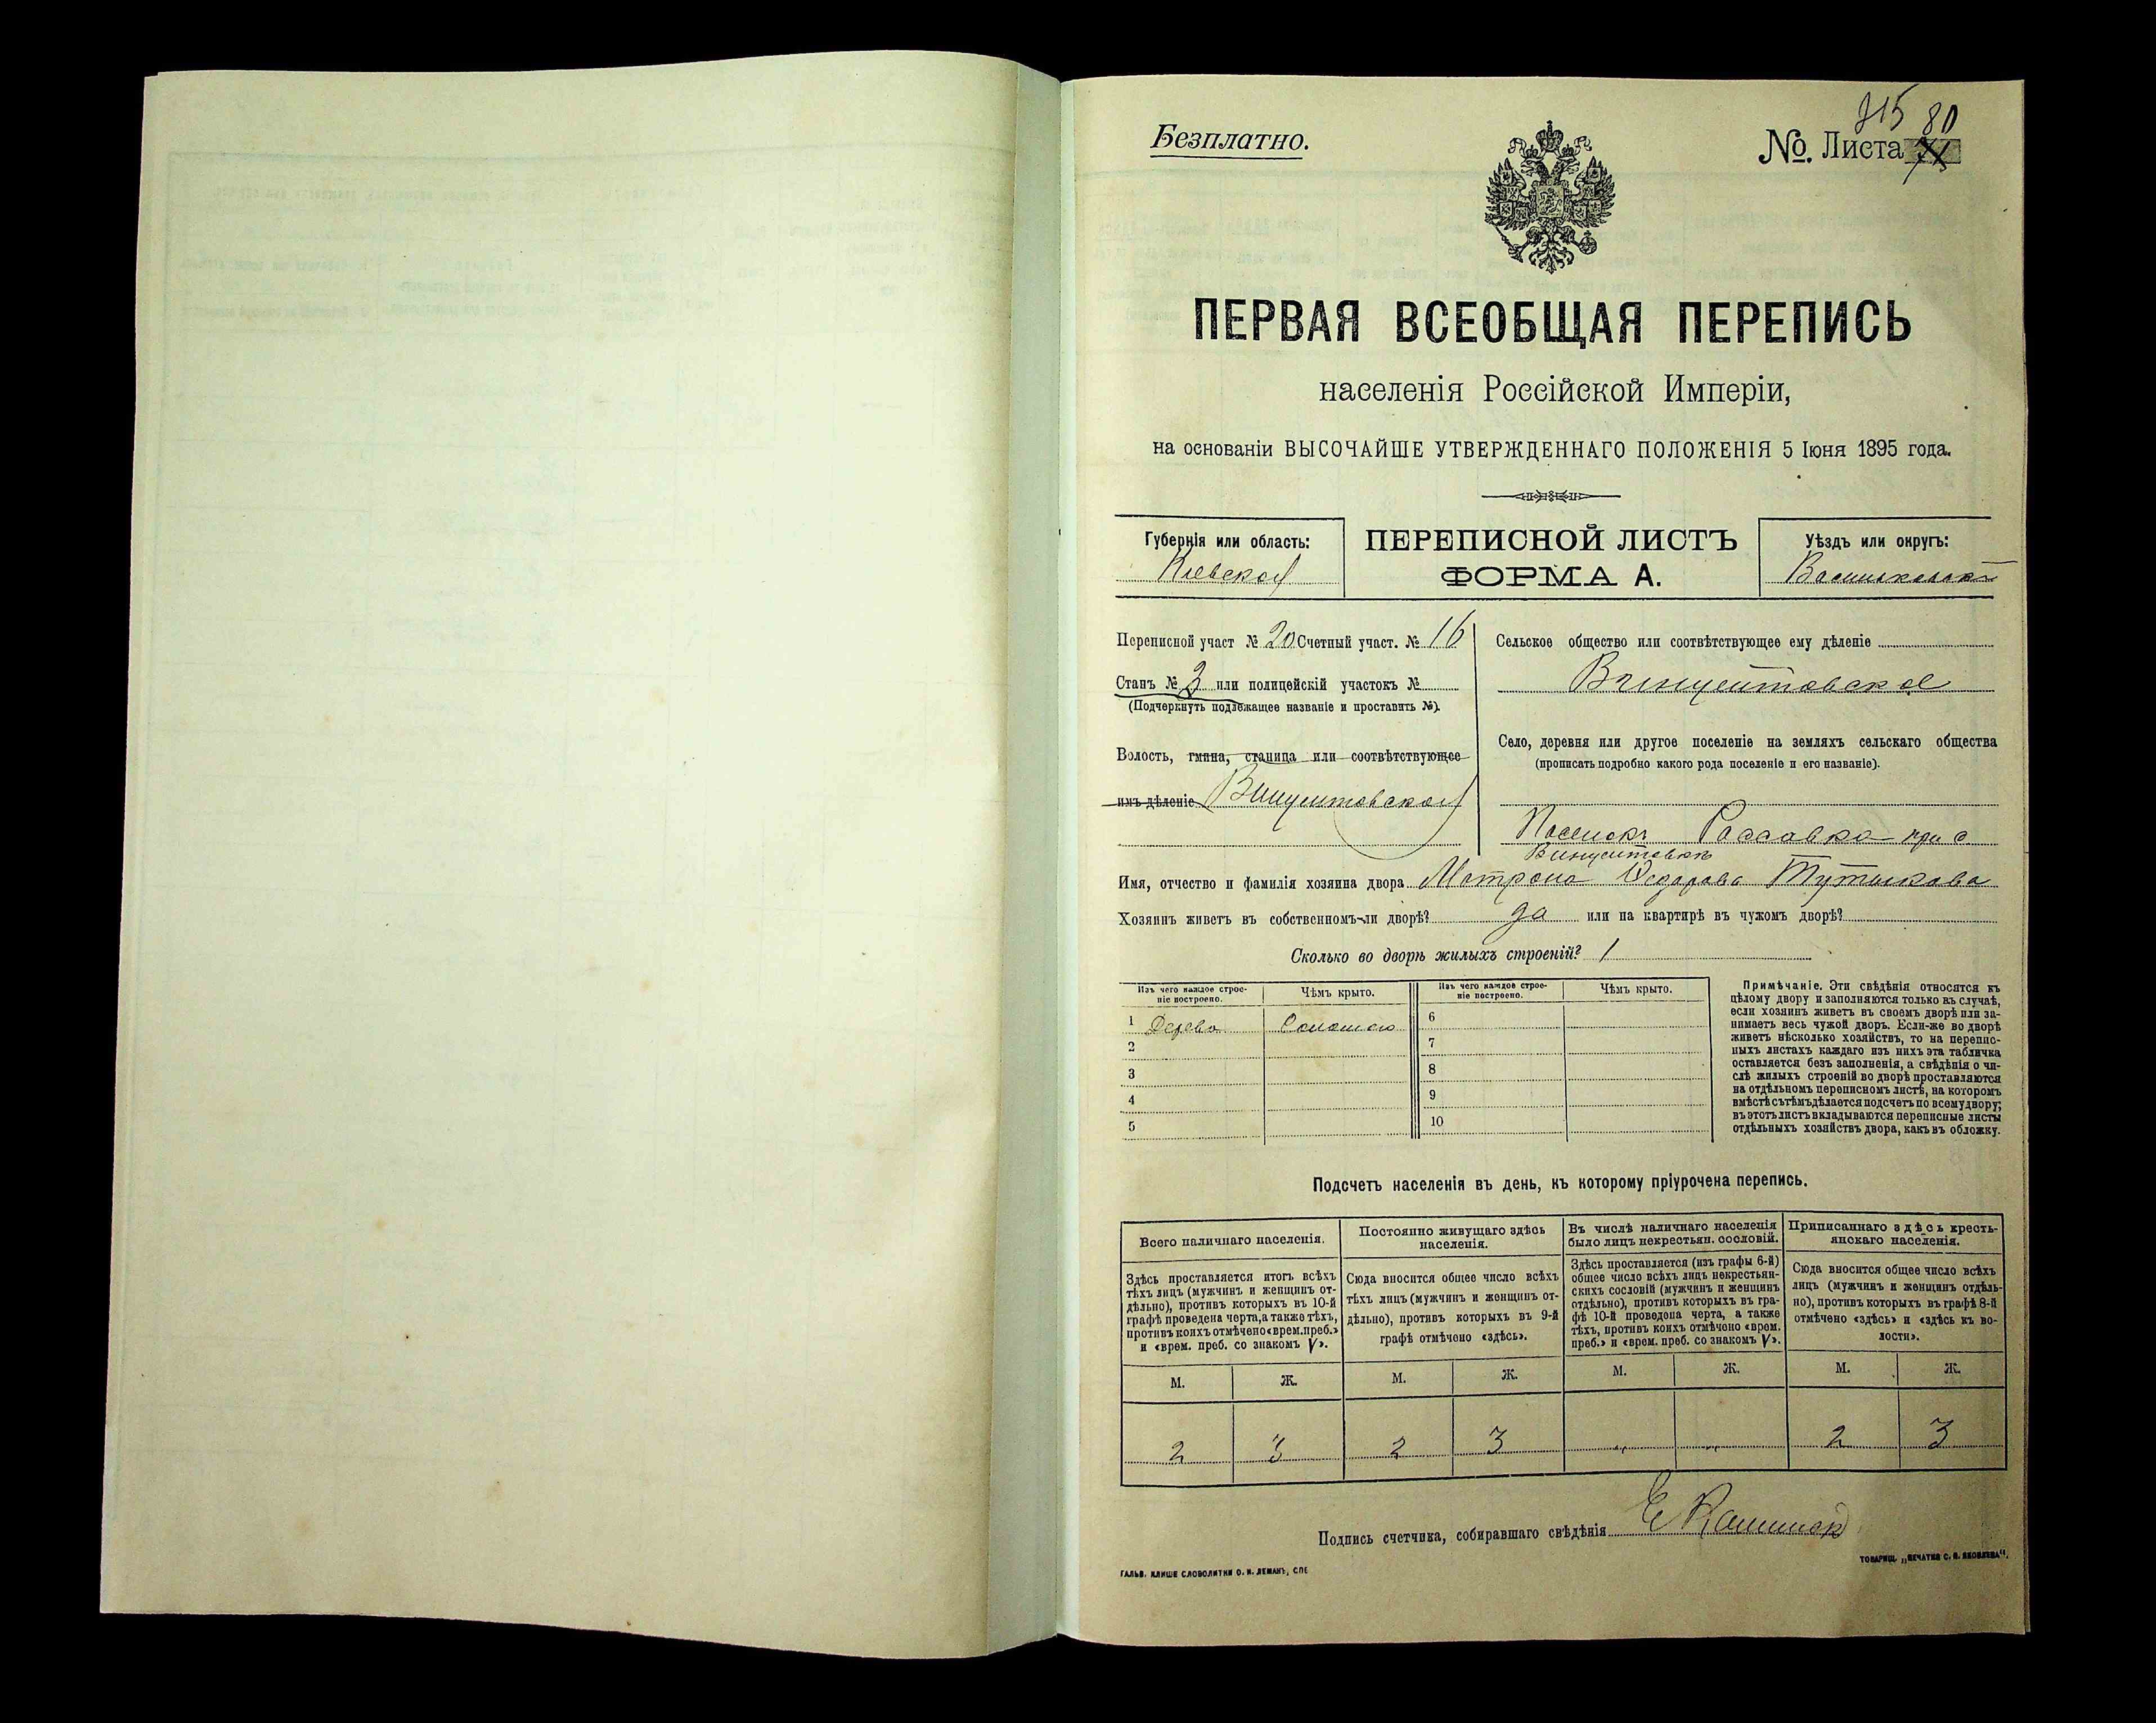 Безплатно.
№. Листа 80
ПЕРВАЯ ВСЕОБЩАЯ ПЕРЕПИСЬ
населенія Россійской Имперіи,
на основаніи ВЫСОЧАЙШЕ УТВЕРЖДЕННАГО ПОЛОЖЕНІЯ 5 Іюня 1895 года.
Губернія или область:
Кіевская
ПЕРЕПИСНОЙ ЛИСТЪ
ФОРМА А.
Уѣздъ или округъ:
Переписной участ № 20 Счетный участ. № 16
Станъ № 3 или полицейскій участокъ №
(Подчеркнуть подлежащее названіе и проставить №).
Волость, гмина, станица или соотвѣтствующее
имъ дѣленіе Винцентовская
Сельское общество или соотвѣтствующее ему дѣленіе
Винцентовское
Село, деревня или другое поселеніе на земляхъ сельскаго общества
(прописать подробно какого рода поселеніе и его названіе).
Поселокъ Россавка при с
Винцентовкѣ
Имя, отчество и фамилія хозяина двора Матрона Федорова
Хозяинъ живетъ въ собственномъ-ли дворѣ? да или на квартирѣ въ чужомъ дворѣ?
Сколько во дворѣ жилыхъ строеній? 1
Изъ чего каждое строе-
ніе построено.
Чѣмъ крыто.
1 Дерева Соломою
2
3
4
5
Изъ чего каждое строе-
ніе построено.
Чѣмъ крыто.
6
7
8
9
10
Примѣчаніе. Эти свѣдѣнія относятся къ
цѣлому двору и заполняются только въ случаѣ,
если хозяинъ живетъ въ своемъ дворѣ или за-
нимаетъ весь чужой дворъ. Если-же во дворѣ
живетъ нѣсколько хозяйствъ, то на перепис-
ныхъ листахъ каждаго изъ нихъ эта табличка
оставляется безъ заполненія, а свѣдѣнія о чи-
слѣ жилыхъ строеній во дворѣ проставляются
на отдѣльномъ переписномъ листѣ, на которомъ
вмѣстѣ съ тѣмъ дѣлается подсчетъ по всему двору;
въ этотъ листъ вкладываются переписные листы
отдѣльныхъ хозяйствъ двора, какъ въ обложку.
Подсчетъ населенія въ день, къ которому пріурочена перепись.
Всего наличнаго населенія.
Здѣсь проставляется итогъ всѣхъ
тѣхъ лицъ (мужчинъ и женщинъ от-
дѣльно), противъ которыхъ въ 10-й
графѣ проведена черта, а также тѣхъ,
противъ коихъ отмѣчено «врем. преб.»
и «врем. преб. со знакомъ V».
М. Ж.
2 3
Постоянно живущаго здѣсь
населенія.
Сюда вносится общее число всѣхъ
тѣхъ лицъ (мужчинъ и женщинъ от-
дѣльно), противъ которыхъ въ 9-й
графѣ отмѣчено «здѣсь».
М. Ж.
2 3
Въ числѣ наличнаго населенія
было лицъ некрестьян. сословій.
Здѣсь проставляется (изъ графы 6-й)
общее число всѣхъ лицъ некрестьян-
скихъ сословій (мужчинъ и женщинъ
отдѣльно), противъ которыхъ въ гра-
фѣ 10-й проведена черта, а также
тѣхъ, противъ коихъ отмѣчено «врем.
преб.» и «врем. преб. со знакомъ V».
М. Ж.
„ „
Приписаннаго здѣсь кресть-
янскаго населенія.
Сюда вносится общее число всѣхъ
лицъ (мужчинъ и женщинъ отдѣль-
но), противъ которыхъ въ графѣ 8-й
отмѣчено «здѣсь» и «здѣсь къ во-
лости».
М. Ж.
2 3
Подпись счетчика, собиравшаго свѣдѣнія
ГАЛЬВ. КЛИШЕ СЛОВОЛИТНИ О. И. ЛЕМАНЪ, СПБ
ТОВАРИЩ. „ПЕЧАТНЯ С. П. ЯКОВЛЕВА“.